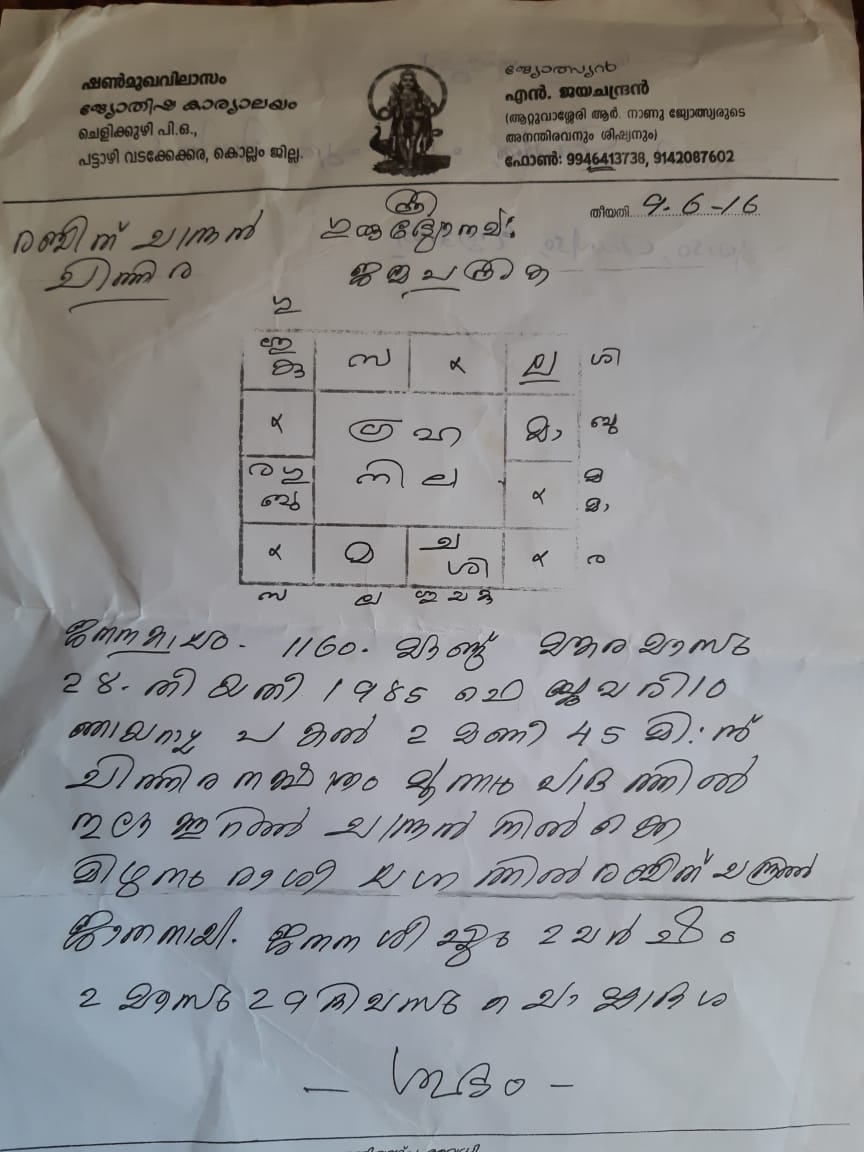 ഷൺമുഖവിലാസം
ജ്യോതിഷ കാര്യാലയം
ചെളിക്കുഴി പി.ഒ.,
പട്ടാഴി വടക്കേക്കര, കൊല്ലം ജില്ല.
ജ്യോത്സ്യൻ
എൻ. ജയചന്ദ്രൻ
(ആറ്റുവാശ്ശേരി ആർ. നാണു ജ്യോത്സ്യരുടെ
അനന്തിരവനും ശിഷ്യനും)
ഫോൺ: 9946413738, 9142087602
തീയതി 9-6-16
ശ്രീ
രഞ്ജിത് ചന്ദ്രൻ
ചിത്തിര
ഗുരുഭ്യോനമഃ
ഗു
കു സ x ല ശി
x ഗ്രഹ മാ ബു
ര ഗു നില
ബു x മാ
x മ ച x ര
ശി
സ ല ഗു ച കു
1160 മാണ്ട് മകര മാസം
28 തീയതി 1985 ഫെബ്രുവരി 10
ഞായറാഴ്ച പകൽ 2 മണി 45 മി:ന്
ചിത്തിര നക്ഷത്രം മൂന്നാം പാദത്തിൽ
തുലാ ക്കൂറിൽ ചന്ദ്രൻ നിൽക്കെ
മിഥുനം രാശി ലഗ്നത്തിൽ രഞ്ജിത് ചന്ദ്രൻ
ജാതനായി. ജനന ശിഷ്ടം 2 വർഷം
2 മാസം 29 ദിവസം ചൊവ്വാദശ
- ശുഭം -